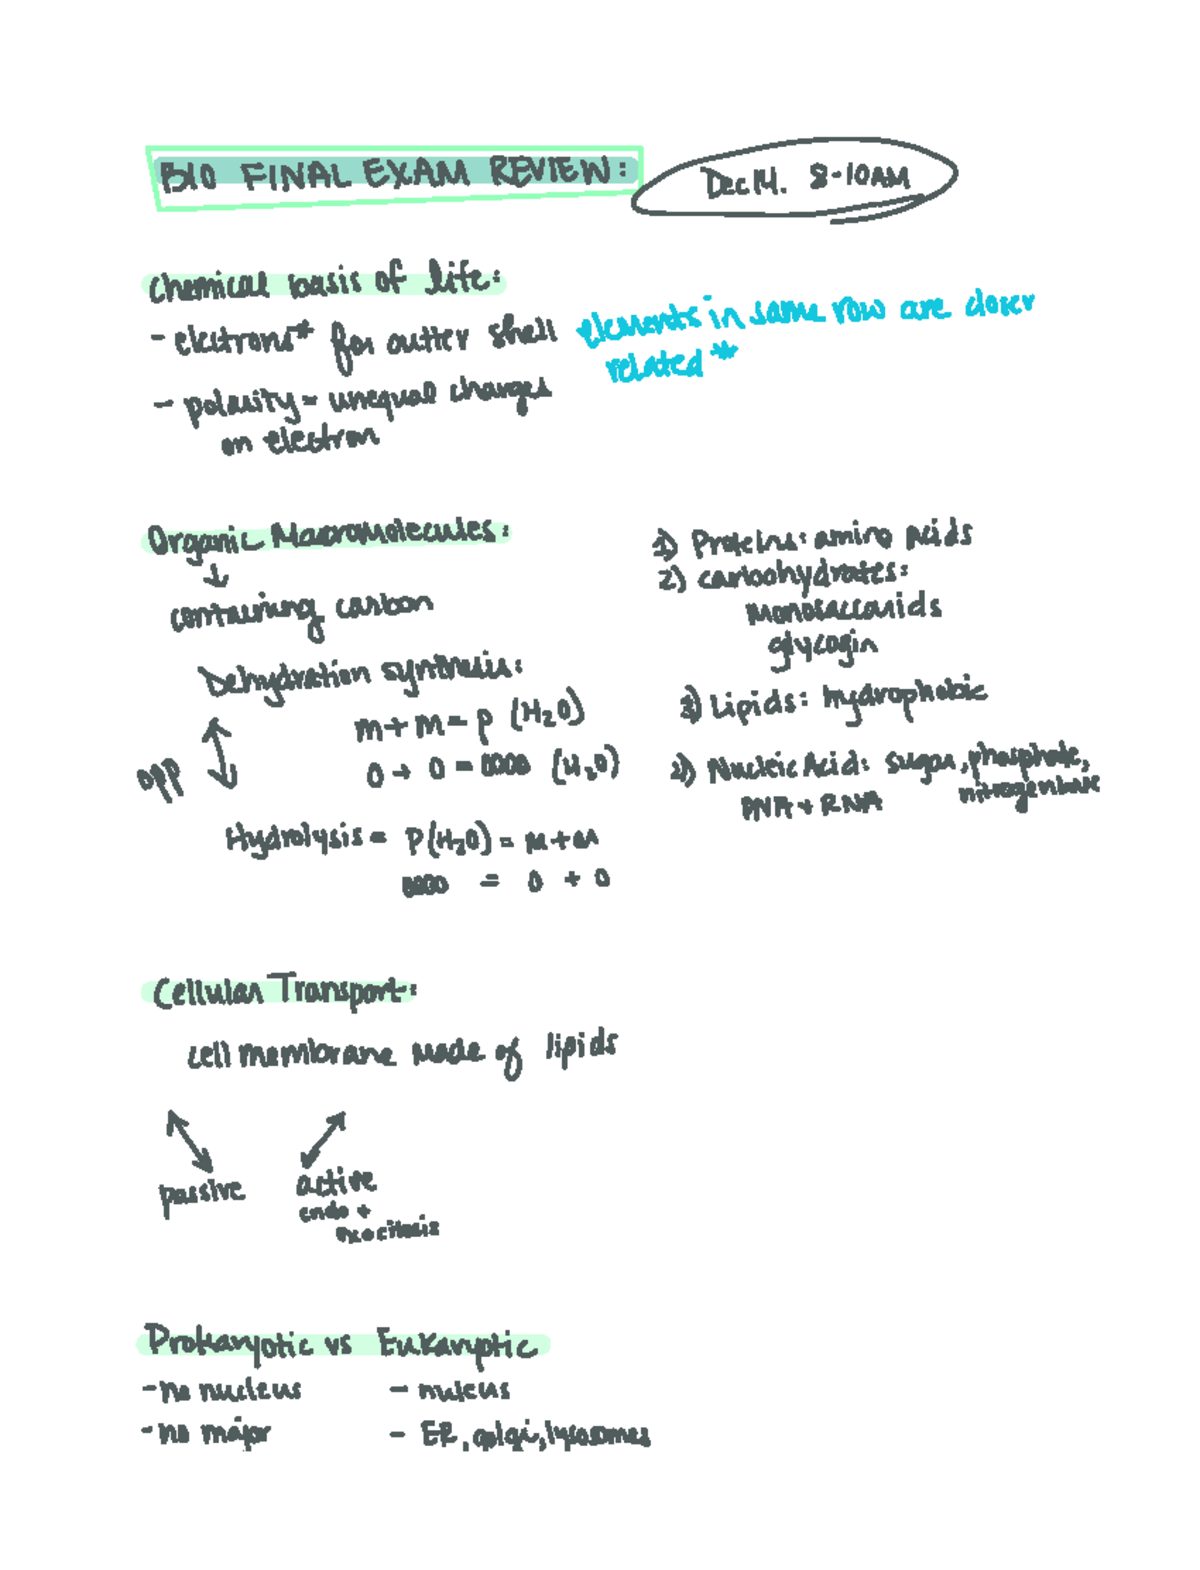 BIO FINAL EXAM REVIEW:
Dec 14. 8-10AM
Chemical basis of life:
- electrons* for outter shell
elements in same row are closer
related *
- polarity = unequal charges
on electron
Organic Macromolecules:
↓
containing carbon
Dehydration synthesis:
m + m = p (H2O)
opp
0 + 0 = 0000 (H2O)
Hydrolysis = P(H2O) = m + m
0000 = 0 + 0
1) Proteins: amino acids
2) carbohydrates:
monosaccarids
glycogin
3) Lipids: hydrophobic
Nucleic Acid: sugar, phosphate,
nitrogen base
DNA + RNA
Cellular Transport:
cell membrane made of lipids
passive
active
endo +
exocitosis
Prokaryotic vs Eukaryotic
- no nucleus
- nuleus
- no major
- ER, golgi, lysosomes